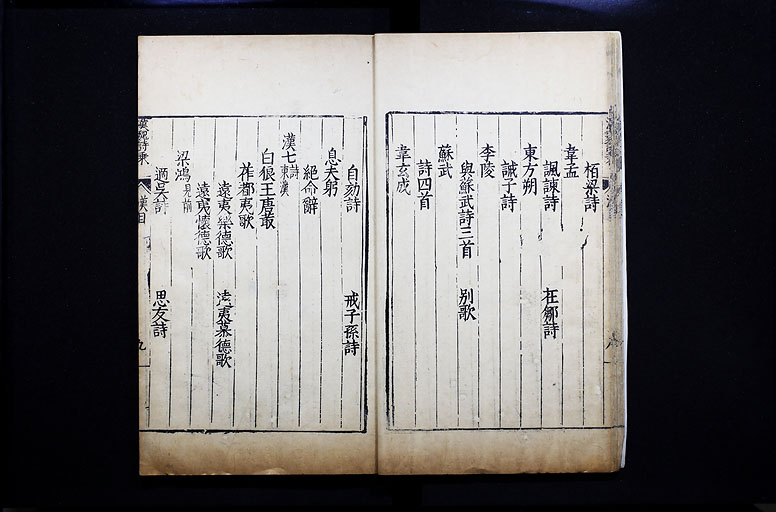 栢梁詩
韋孟
諷諫詩 在鄒詩
東方朔
誡子詩
李陵
與蘇武詩三首 别歌
蘇武
詩四首
韋玄成
自劾詩 戒子孫詩
息夫躬
絕命辭
漢七 詩 東漢
白狼王唐菆
莋都夷歌
遠夷樂德歌 遠夷慕德歌
遠夷懷德歌
梁鴻 見前
適吳詩 思友詩
漢魏詩乘 漢目 九